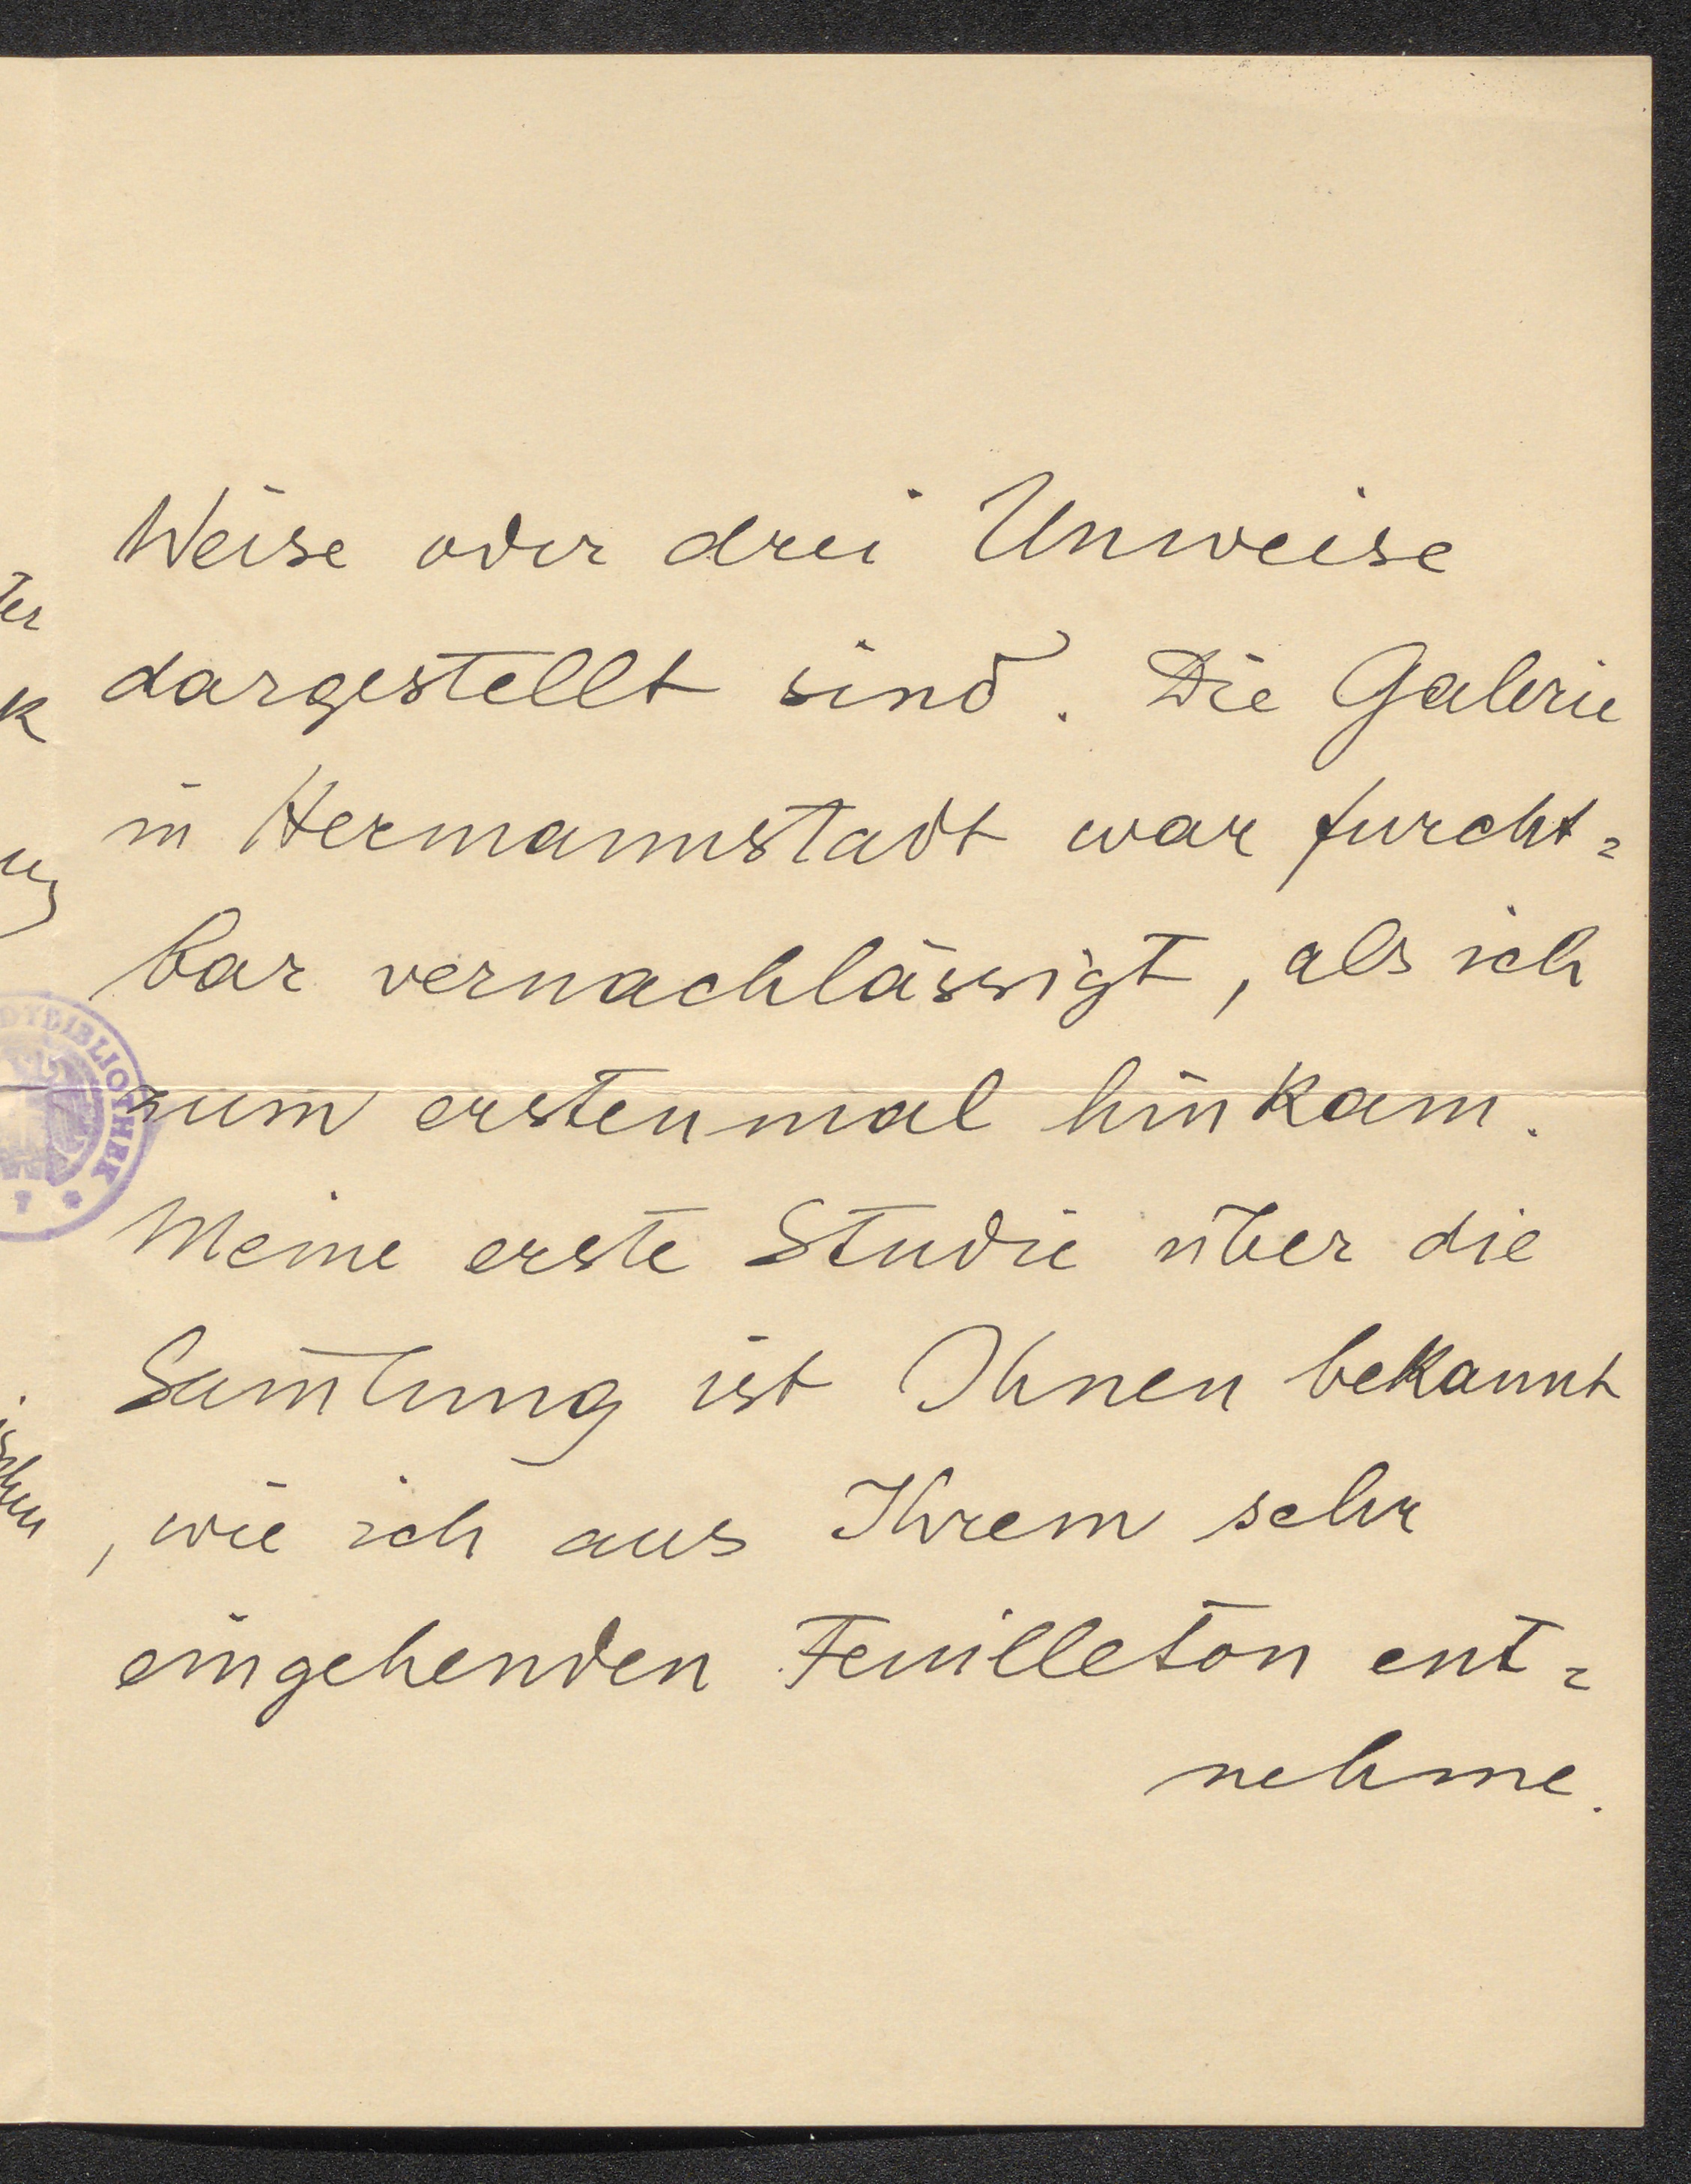 Weise oder drei Unweise
dargestellt sind. Die Galerie
in Hermannstadt war furcht=
bar vernachlässigt, als ich
zum erstenmal hinkam.
Meine erste Studie über die
Sam̄lung ist Ihnen bekannt
, wie ich aus Ihrem sehr
eingehenden Feuilleton ent=
nehme.